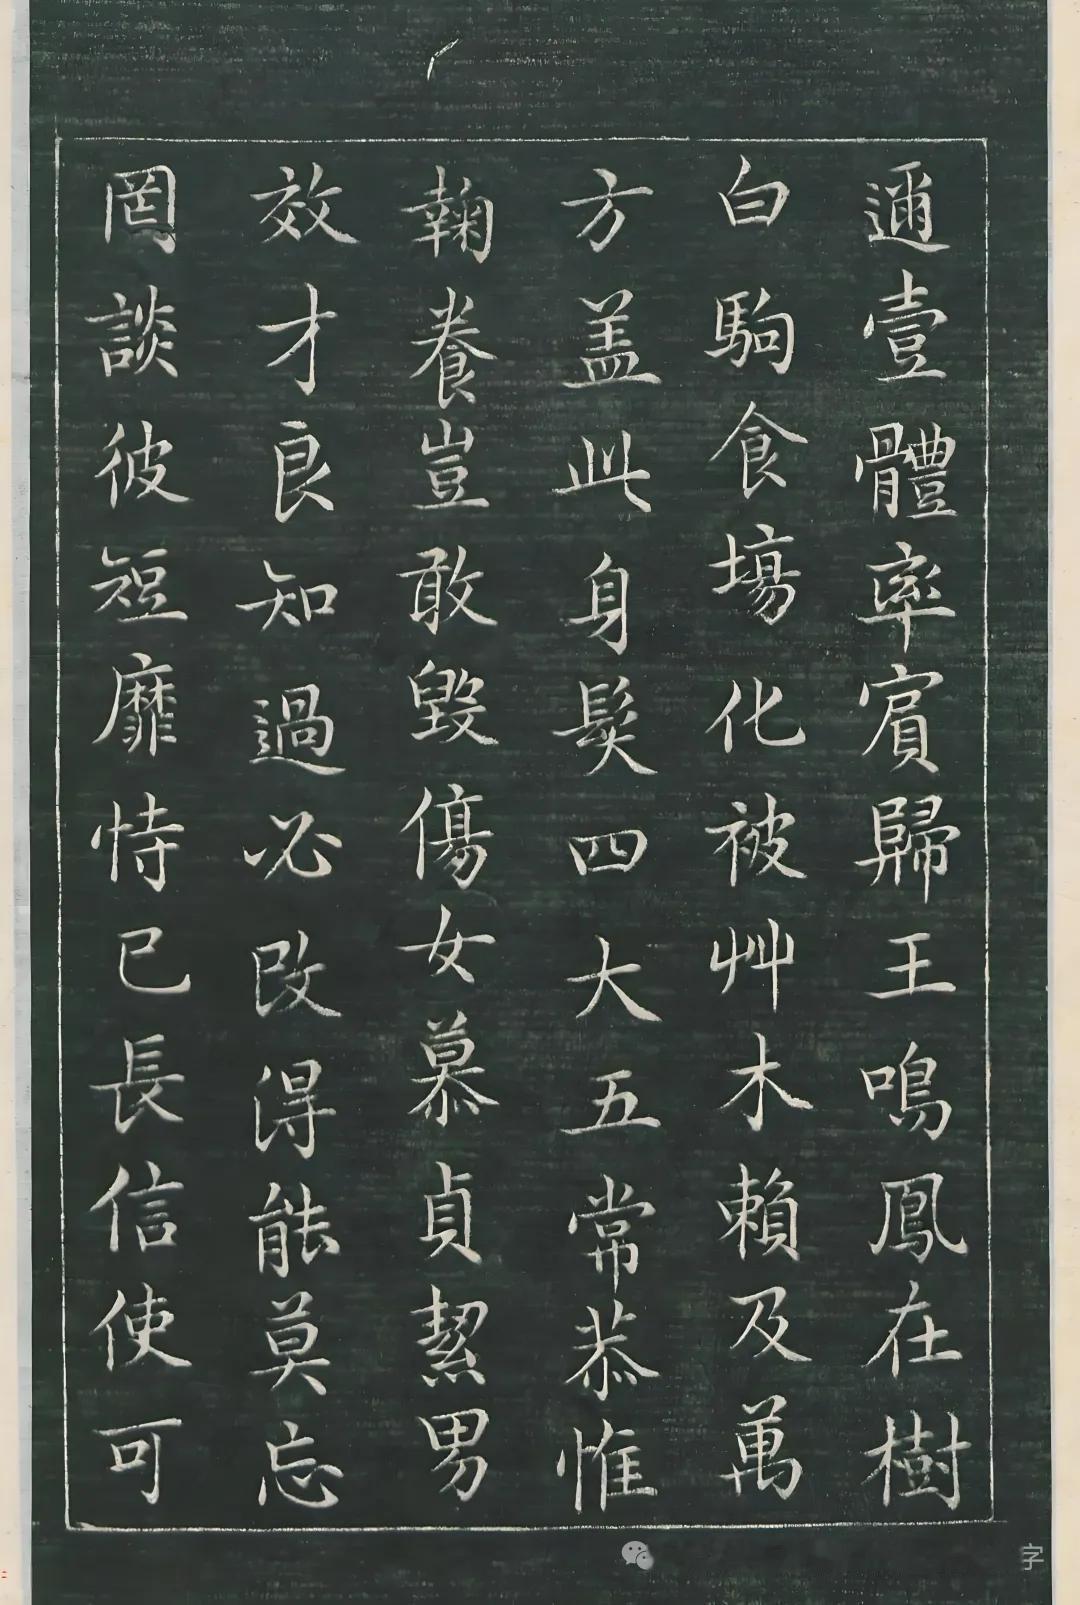 邇壹體率賓歸王鳴鳳在樹
白駒食塲化被艸木賴及萬
方盖此身髮四大五常恭惟
鞠養豈敢毀傷女慕貞絜男
效才良知過必改得能莫忘
罔談彼短靡恃己長信使可
字